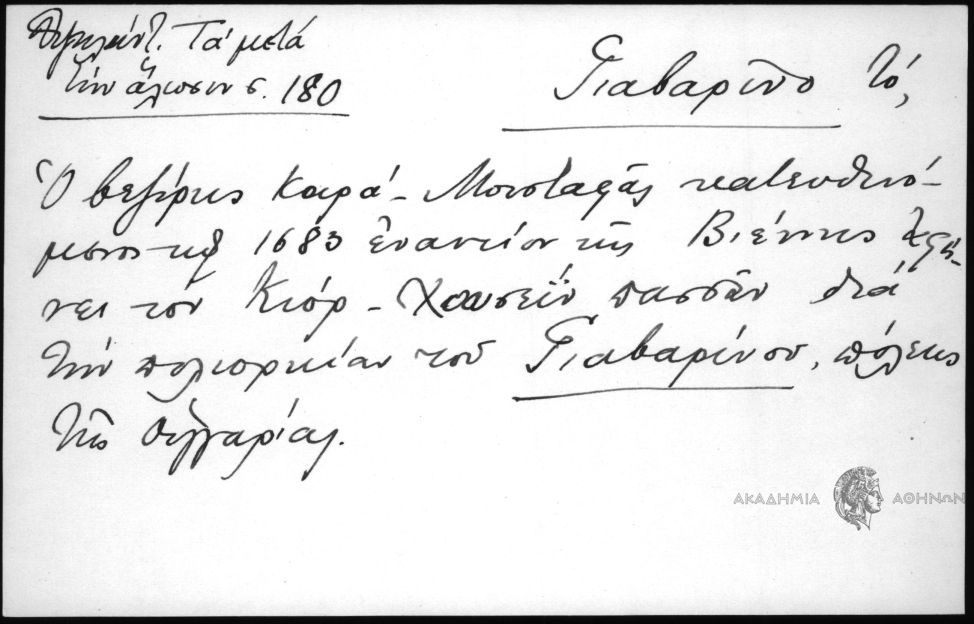 Ὑψηλάντ. Τά μετά
τήν ἅλωσιν σ. 180
Γιαβαρῖνο τό,
Ὁ βεζίρης Καρά-Μουσταφᾶς κατευθυνό-
μενος τῷ 1683 ἐναντίον τῆς Βιέννης ἀφή-
νει τόν Κιόρ-Χουσεΐν πασσᾶν διά
τήν πολιορκίαν τοῦ Γιαβαρίνου, πόλεως
τῆς Οὐγγαρίας.
ΑΚΑΔΗΜΙΑ ΑΘΗΝΩΝ